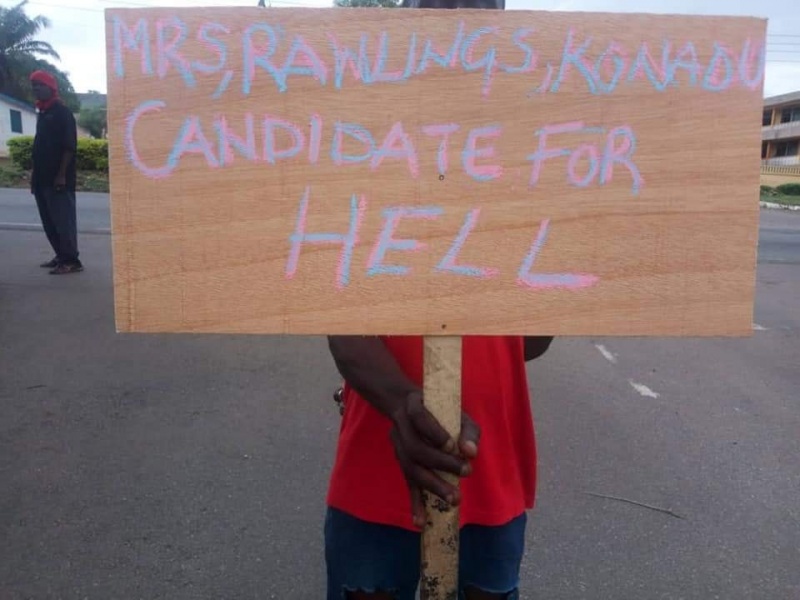 MRS, RAWLINGS, KONADU
CANDIDATE FOR
HELL